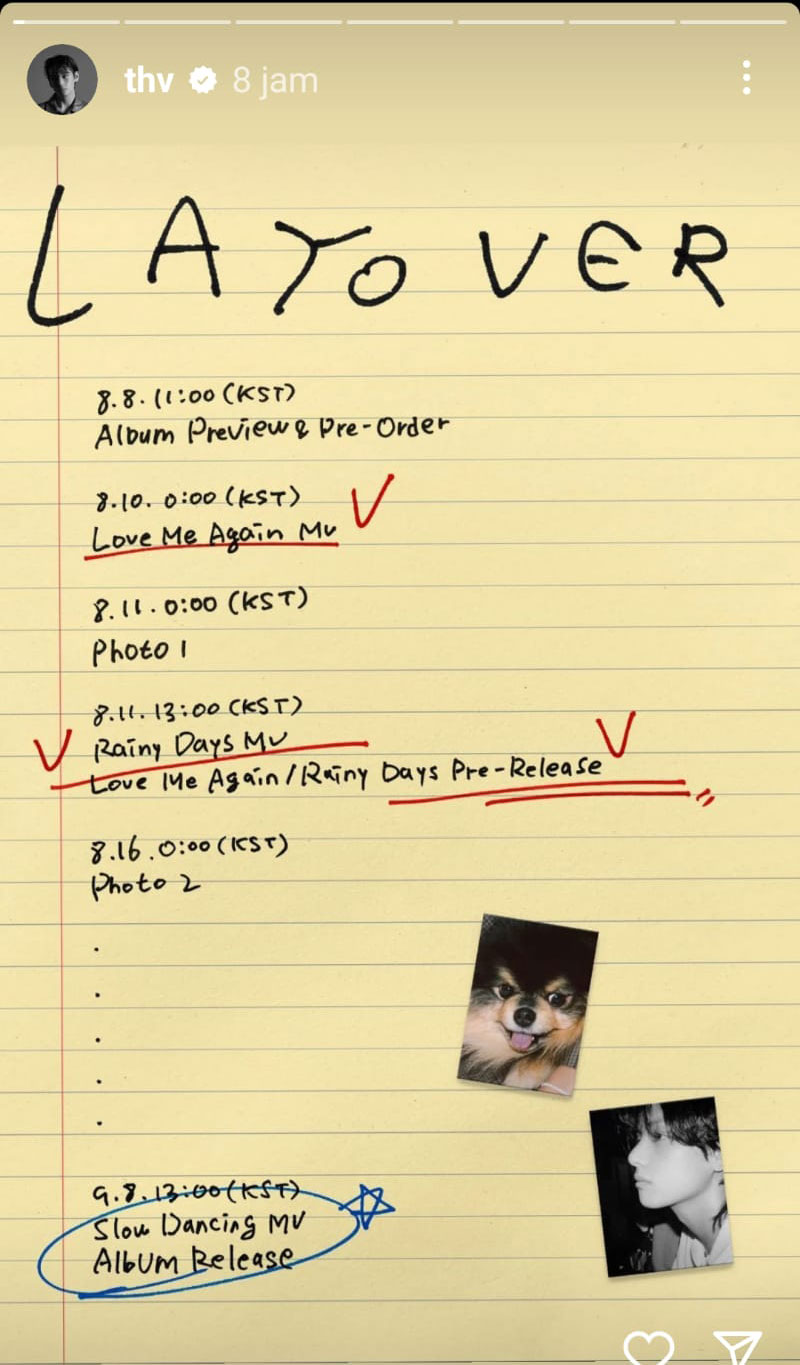 thv 8 jam
LAYOVER
8.8.11:00 (KST)
Album Preview & Pre-Order
8.10. 0:00 (KST)
Love Me Again MV
8.11. 0:00 (KST)
Photo 1
8.11. 13:00 (KST)
Rainy Days MV
Love Me Again/Rainy Days Pre-Release
8.16.0:00 (KST)
Photo 2
.
.
.
.
.
9.8.13:00 (KST)
Slow Dancing MV
Album Release